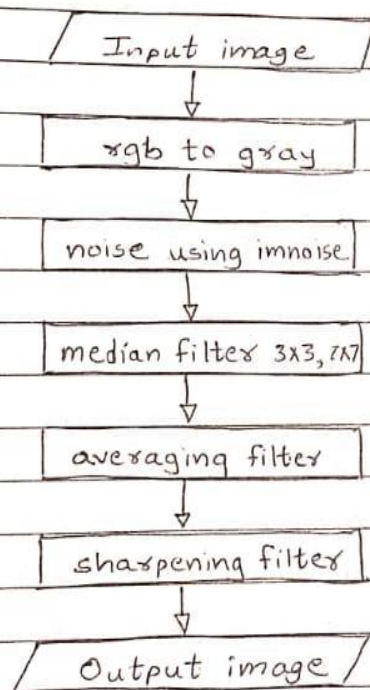 Input image
rgb to gray
noise using imnoise
median filter 3x3, 7x7
averaging filter
sharpening filter
Output image